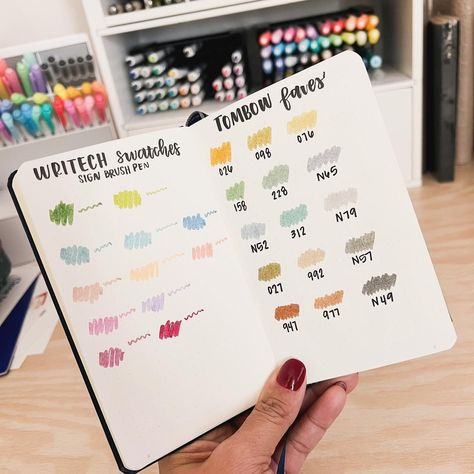 WRITECH swatches
SIGN BRUSH PEN
TOMBOW faves
026 098 076
158 228 N65
N52 312 N79
027 992 N57
947 977 N49